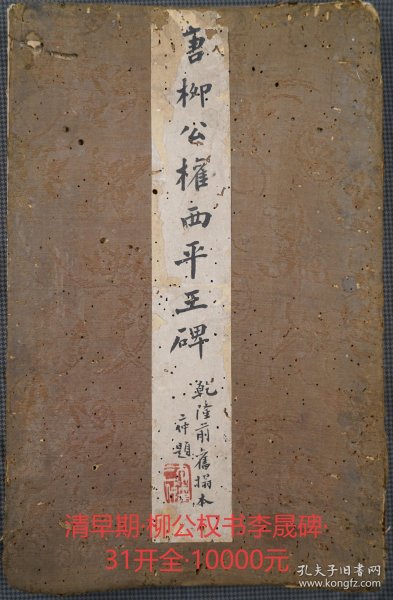 唐柳公權西平王碑
乾隆前舊搨本
二坤題
清早期·柳公权书李晟碑·
31开全·10000元
孔夫子旧书网
www.kongfz.com